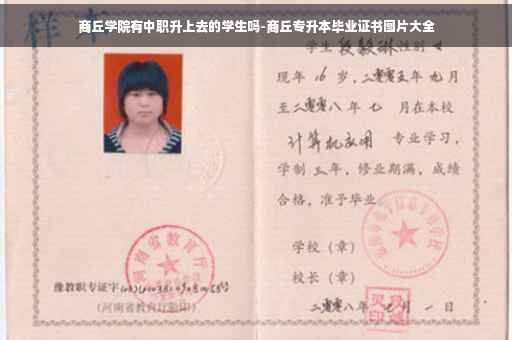 商丘学院有中职升上去的学生吗-商丘专升本毕业证书图片大全
样本
学生 段毅琳 性别 女
现年 16 岁，二零零五年 九 月
至二零零八年 七 月在本校
计算机应用 专业学习，
学制 三 年，修业期满，成绩
合格，准予毕业
学校（章）
校长（章）
二零零八年 七 月 一 日
河南省教育厅
豫教职专证字
（河南省教育厅验印）